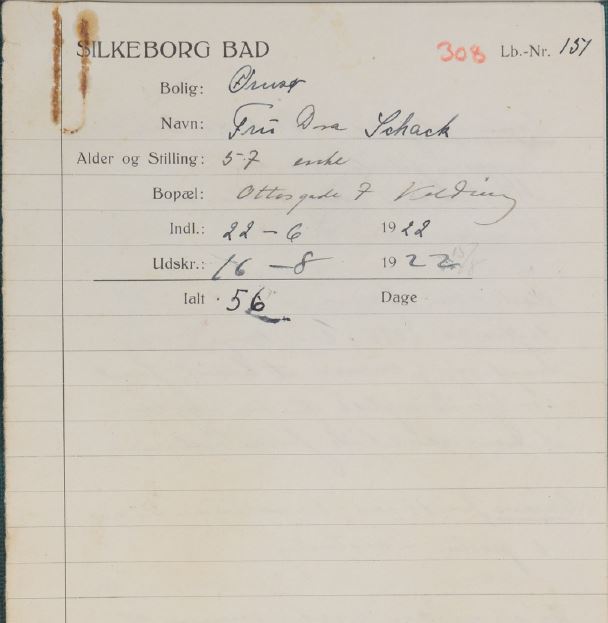 SILKEBORG BAD 308 Lb.-Nr. 151
Bolig: Ørnsø
Navn: Fru Dra Schack
Alder og Stilling: 57 enke
Bopæl: Ottosgade 7 Kolding
Indl.: 22-6 1922
Udskr.: 16-8 1922
Ialt 56 Dage